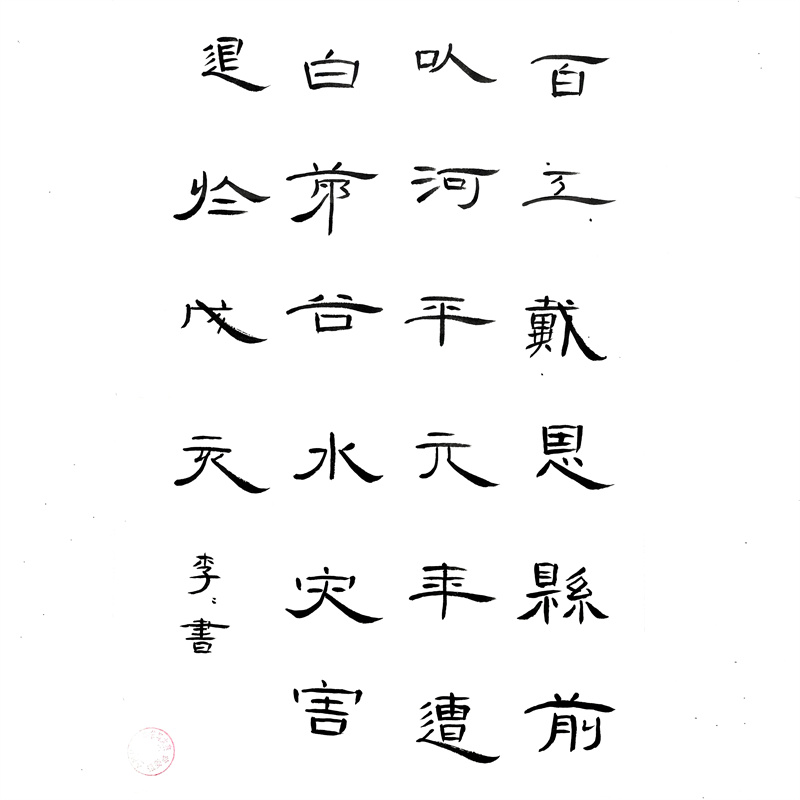 百工戴恩縣前
以河平元年遭
白茅谷水灾害
退於戊亥
李〻書